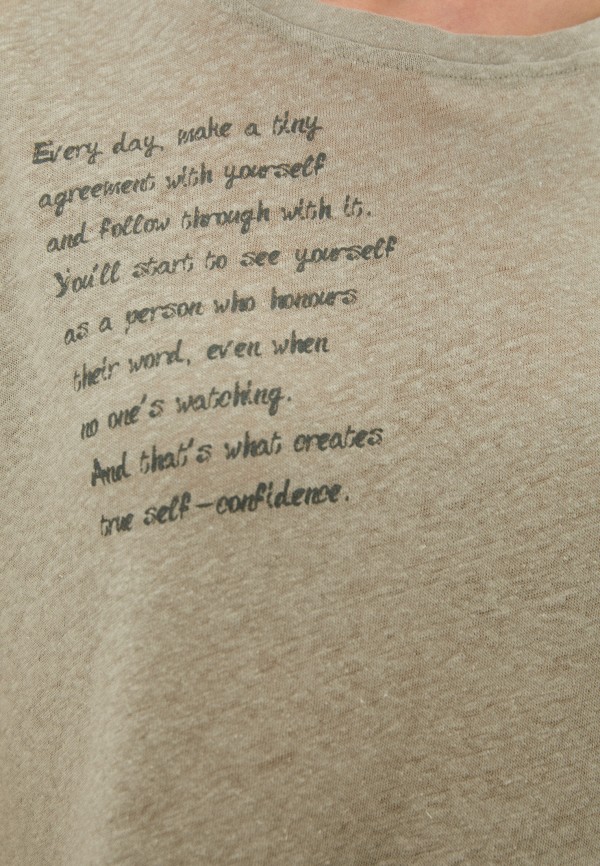 Every day, make a tiny
agreement with yourself
and follow through with it.
You'll start to see yourself
as a person who honours
their word, even when
no one's watching.
And that's what creates
true self-confidence.